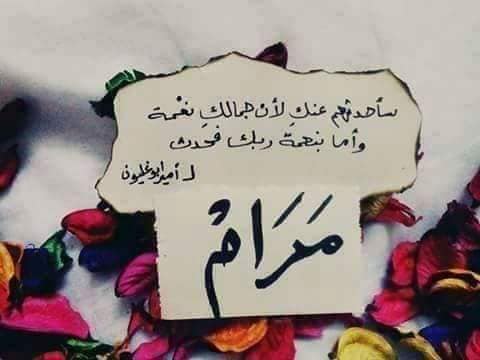 سأحدثهم عنكِ لأن جمالكِ نغمة
وأما بنعمة ربك فحدث
لـ أمير أبو غليون
مَرَام